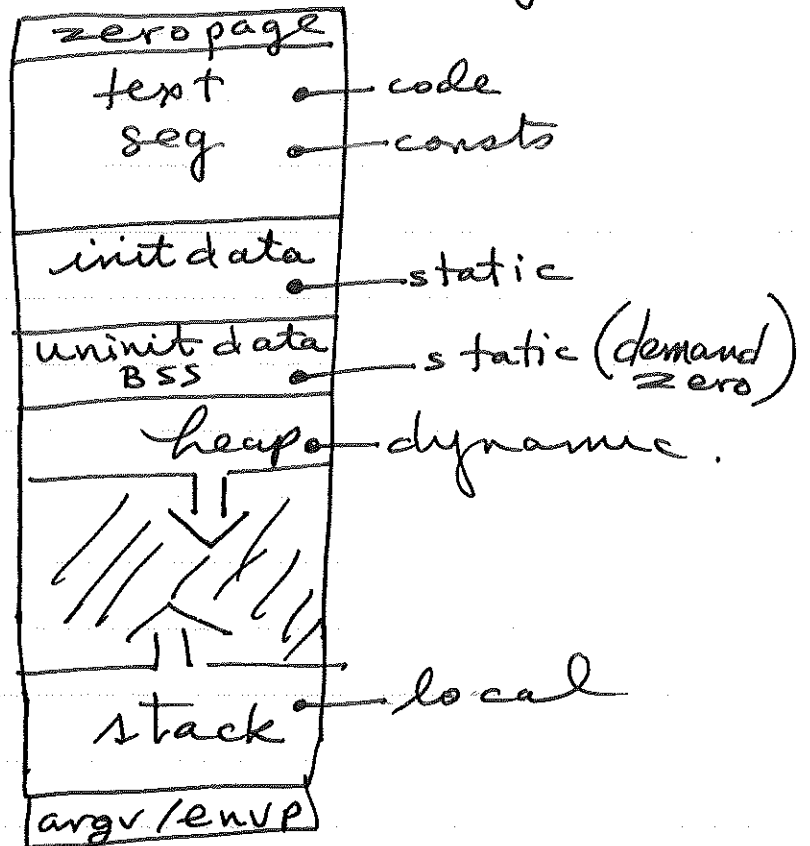 zero page
text code
seg consts
init data
static
uninit data static (demand
BSS zero)
heap dynamic.
stack local
argv/envp